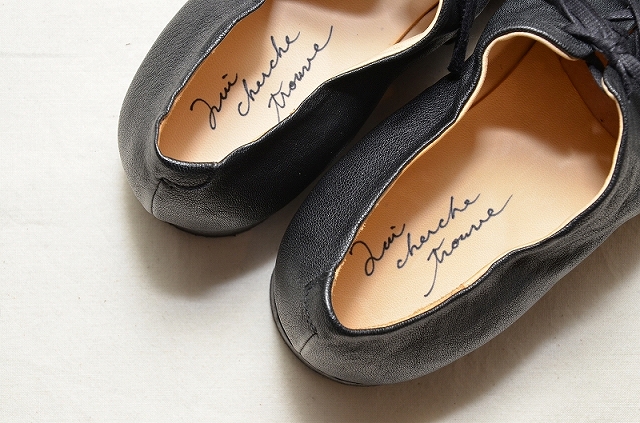 Qui
cherche
trouve
Qui
cherche
trouve